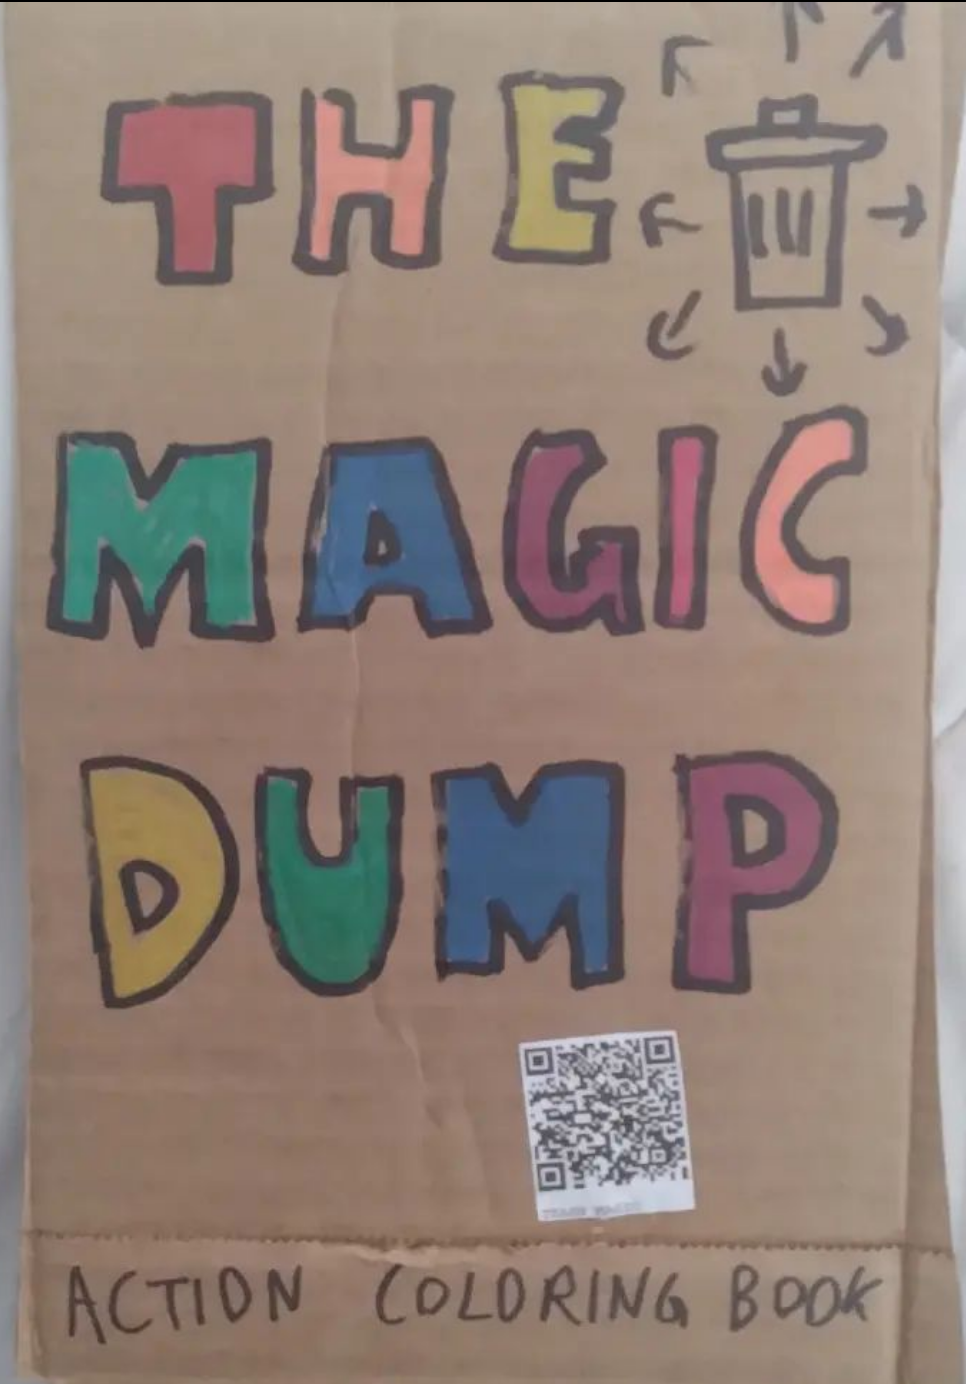 THE
MAGIC
DUMP
ACTION COLORING BOOK